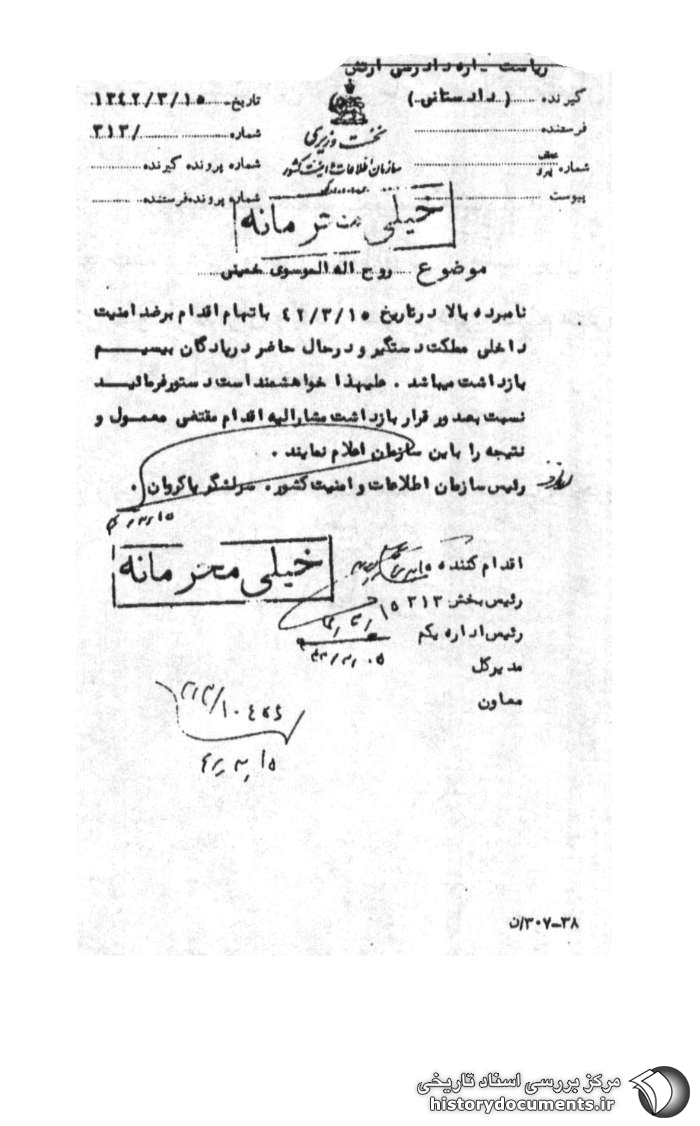 ریاست اداره دادرسی ارتش
گیرنده (دادستانی)
تاریخ ۱۳۴۲/۳/۱۵
فرستنده
شماره /۳۱۳
شماره پیرو
شماره پرونده گیرنده
پیوست
شماره پرونده فرستنده
نخست وزیری
سازمان اطلاعات و امنیت کشور
خیلی محرمانه
موضوع روح اله الموسوی خمینی
نامبرده بالا در تاریخ ۴۲/۳/۱۵ باتهام اقدام برضد امنیت
داخلی مملکت دستگیر و در حال حاضر در پادگان بیسیم
بازداشت میباشد . علیهذا خواهشمند است دستور فرمائید
نسبت بصدور قرار بازداشت مشارالیه اقدام مقتضی معمول و
نتیجه را باین سازمان اعلام نمایند .
رئیس سازمان اطلاعات و امنیت کشور. سرلشگر پاکروان .
خیلی محرمانه
اقدام کننده
رئیس بخش ۳۱۳
رئیس اداره یکم
مدیرکل
معاون
۳۰۷-۳۸/ن
مرکز بررسی اسناد تاریخی
historydocuments.ir